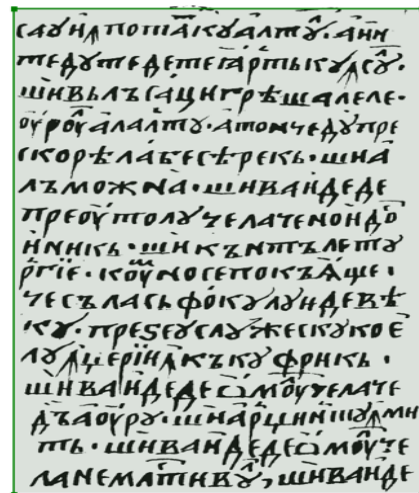 саꙋи ꙟпотїакꙋалтꙋ · аин
тедꙋтедетегартькꙋꙟсꙋ ·
шивьлъсацигрѣшалеле ·
ѹрѹалалтꙋ · атѹнчедꙋпре
скорѣлабесѣрекь · шиа
лъможна · шиваидеде
преѹтолꙋчелаченоидо
иникь · шикънтълетꙋ
ргїе · кѹмносепокъаще ·
чесъласьфокꙋлꙋидевѣ
кꙋ · преѕеꙋслꙋжескꙋкое
лꙋꙟцерїиꙟкъкꙋфрикь ·
шиваидедеꙍмѹчелаче
дъаѹрꙋ · шиарцинтшꙋꙟми
ть · шиваидедеꙍмѹче
ланемативꙋ, шиваиде